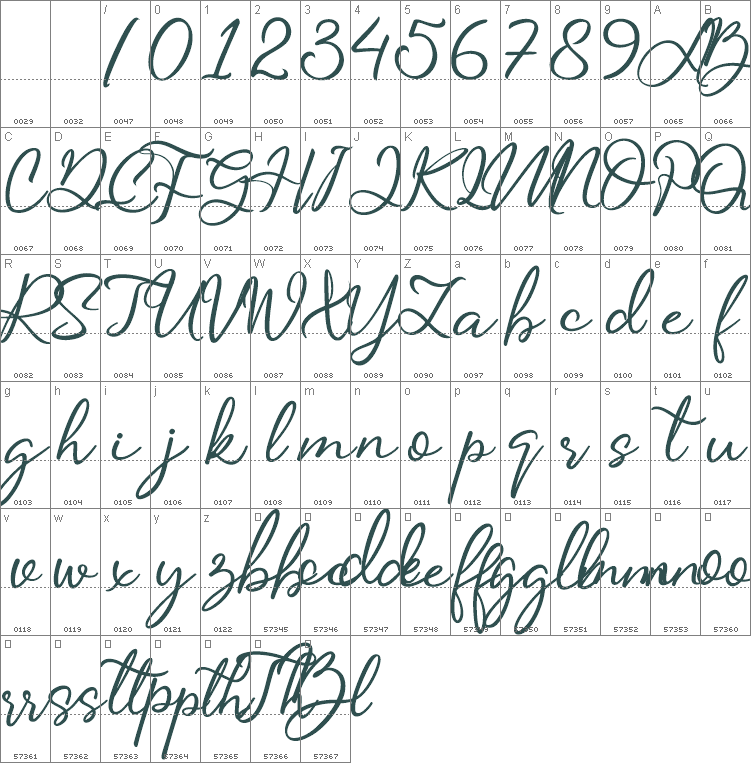 / 0 1 2 3 4 5 6 7 8 9 A B
/ 0 1 2 3 4 5 6 7 8 9 A B
0029 0032 0047 0048 0049 0050 0051 0052 0053 0054 0055 0056 0057 0065 0066
C D E F G H I J K L M N O P Q
C D E F G H I J K L M N O P Q
0067 0068 0069 0070 0071 0072 0073 0074 0075 0076 0077 0078 0079 0080 0081
R S T U V W X Y Z a b c d e f
R S T U V W X Y Z a b c d e f
0082 0083 0084 0085 0086 0087 0088 0089 0090 0097 0098 0099 0100 0101 0102
g h i j k l m n o p q r s t u
g h i j k l m n o p q r s t u
0103 0104 0105 0106 0107 0108 0109 0110 0111 0112 0113 0114 0115 0116 0117
v w x y z
v w x y z bb cc dd ee ff gg ll mm nn oo
0118 0119 0120 0121 0122 57345 57346 57347 57348 57349 57350 57351 57352 57353 57360
rr ss tt pp th
57361 57362 57363 57364 57365 57366 57367